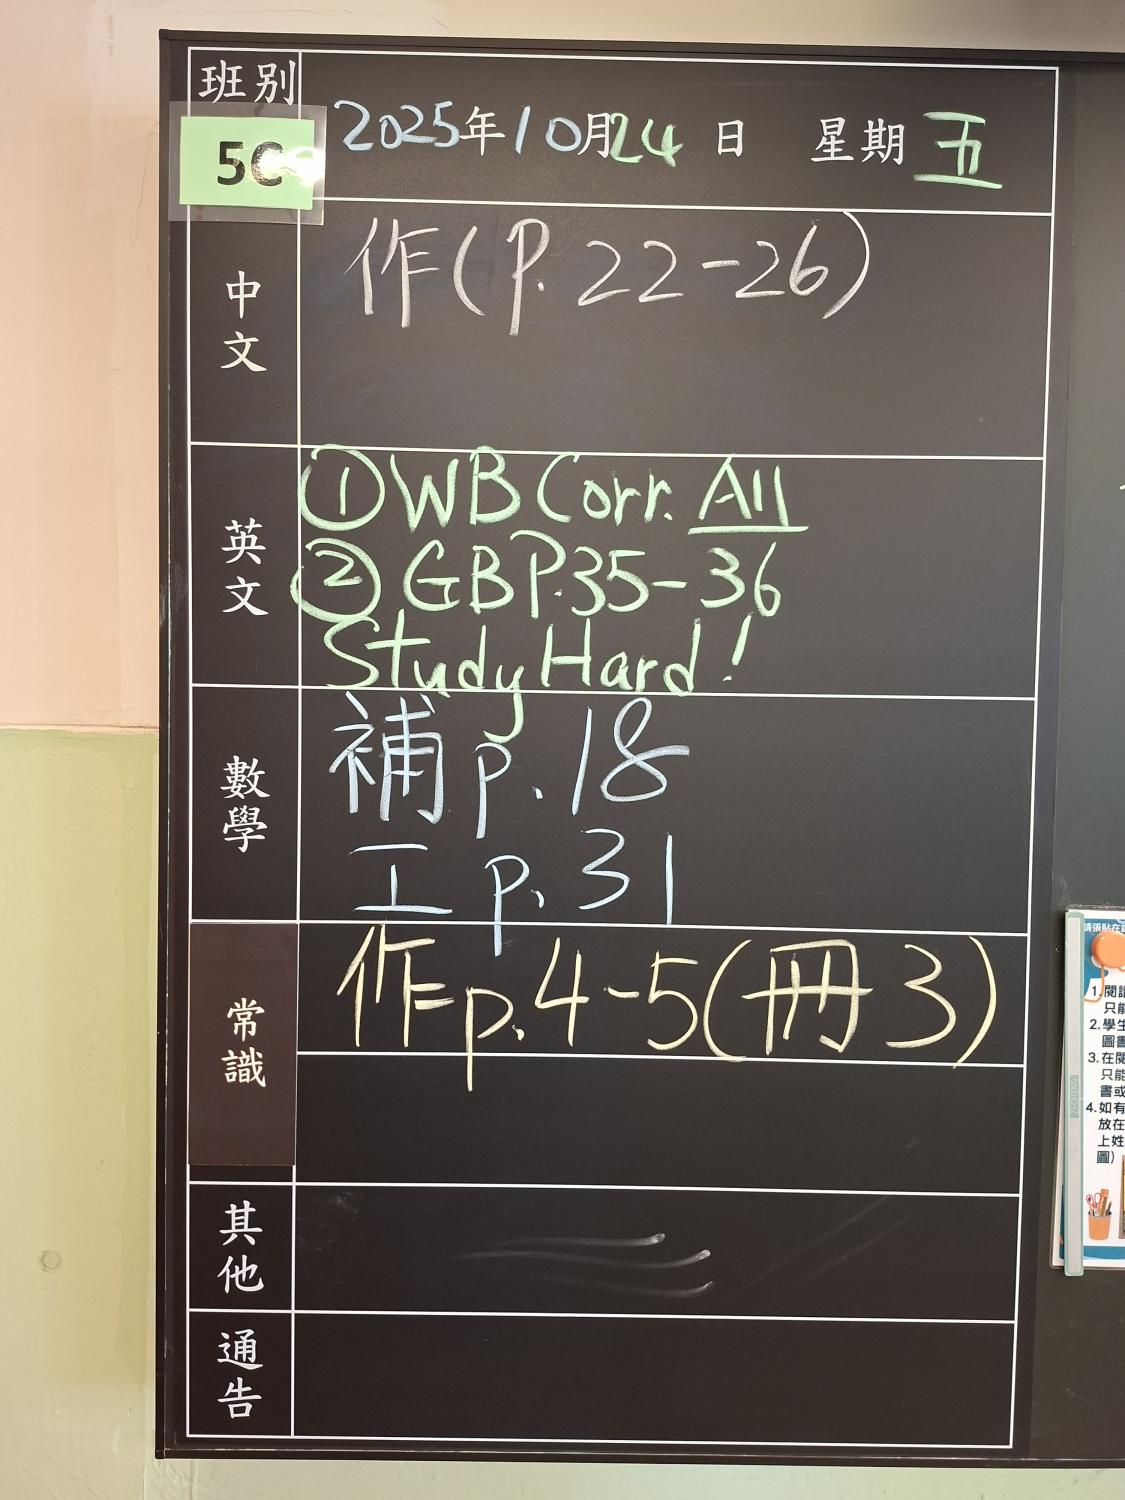 班別
5C
2025年10月24日 星期五
中文
作(P.22-26)
英文
①WB Corr. All
②GBP.35-36
Study Hard!
數學
補p.18
工p.31
常識
作p.4-5(冊3)
其他
通告
1.閱
只能
2.學生
圖書
3.在閱
只能
書或
4.如有
放在
上姓
圖)